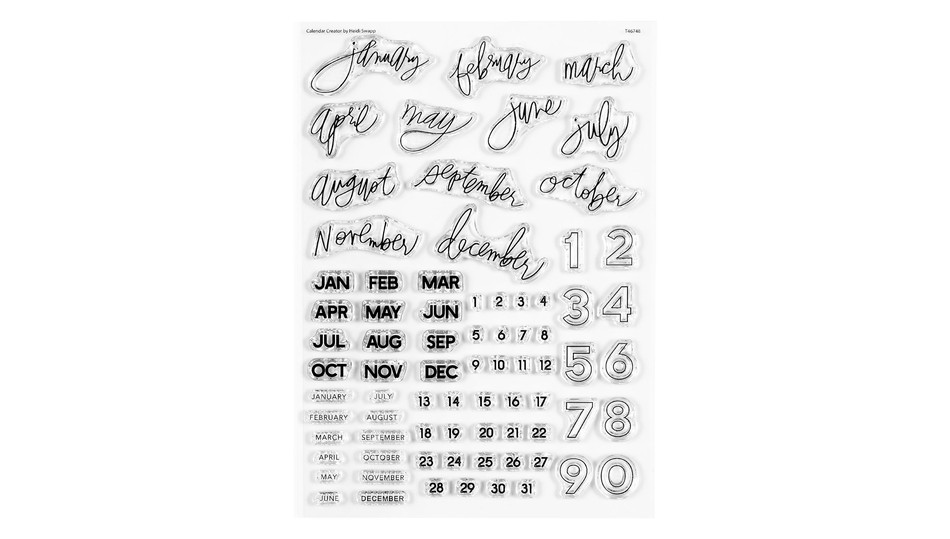 Calendar Creator by Heidi Swapp
T46740
january february march
april may june july
august september october
November december
1 2
3 4
5 6
7 8
9 0
JAN FEB MAR
APR MAY JUN
JUL AUG SEP
OCT NOV DEC
1 2 3 4
5 6 7 8
9 10 11 12
JANUARY JULY
FEBRUARY AUGUST
MARCH SEPTEMBER
APRIL OCTOBER
MAY NOVEMBER
JUNE DECEMBER
13 14 15 16 17
18 19 20 21 22
23 24 25 26 27
28 29 30 31